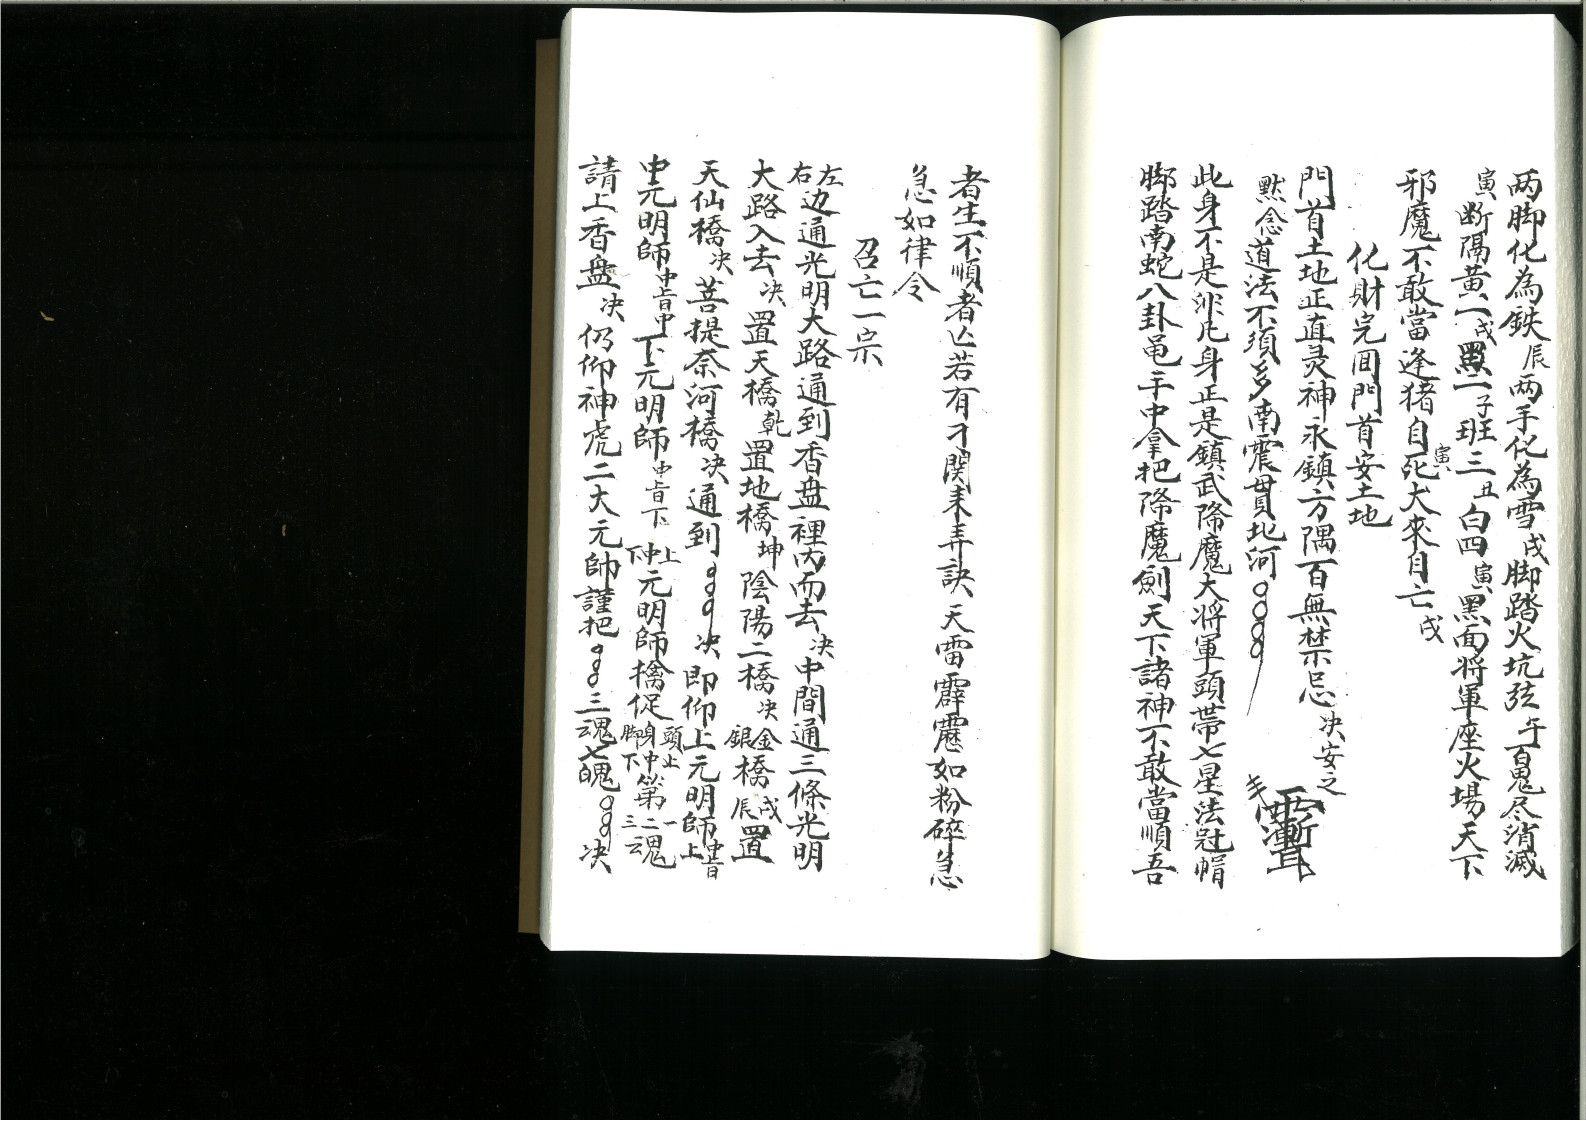 两脚化為鉄辰两手化為雪戌脚踏火坑弦午百鬼尽消滅
寅断隔黄一戌黑二子班三丑白四寅黑面将軍座火場天下
邪魔不敢當逢猪自死寅犬來自亡戌
化財完囬門首安土地
門首土地正直灵神永鎮方隅百無禁忌决安之
默念道法不須多南震貫北河
此身不是非凢身正是鎮武降魔大将軍頭帶七星法冠帽
脚踏南蛇八卦黾手中拿把降魔劍天下諸神不敢當順吾
者生不順者亡若有刁関来弄訣天雷霹靂如粉碎急
急如律令
召亡一宗
左右边通光明大路通到香盘裡内而去决中間通三條光明
大路入去决置天橋乾置地橋坤陰陽二橋决金銀橋戌辰置
天仙橋决菩提奈河橋决通到决即仰上元明師中旨上
中元明師中旨中下元明師中旨下上中下元明師擒促頭上身中脚下第一二三魂
請上香盘决仍仰神虎二大元師謹把三魂七魄决